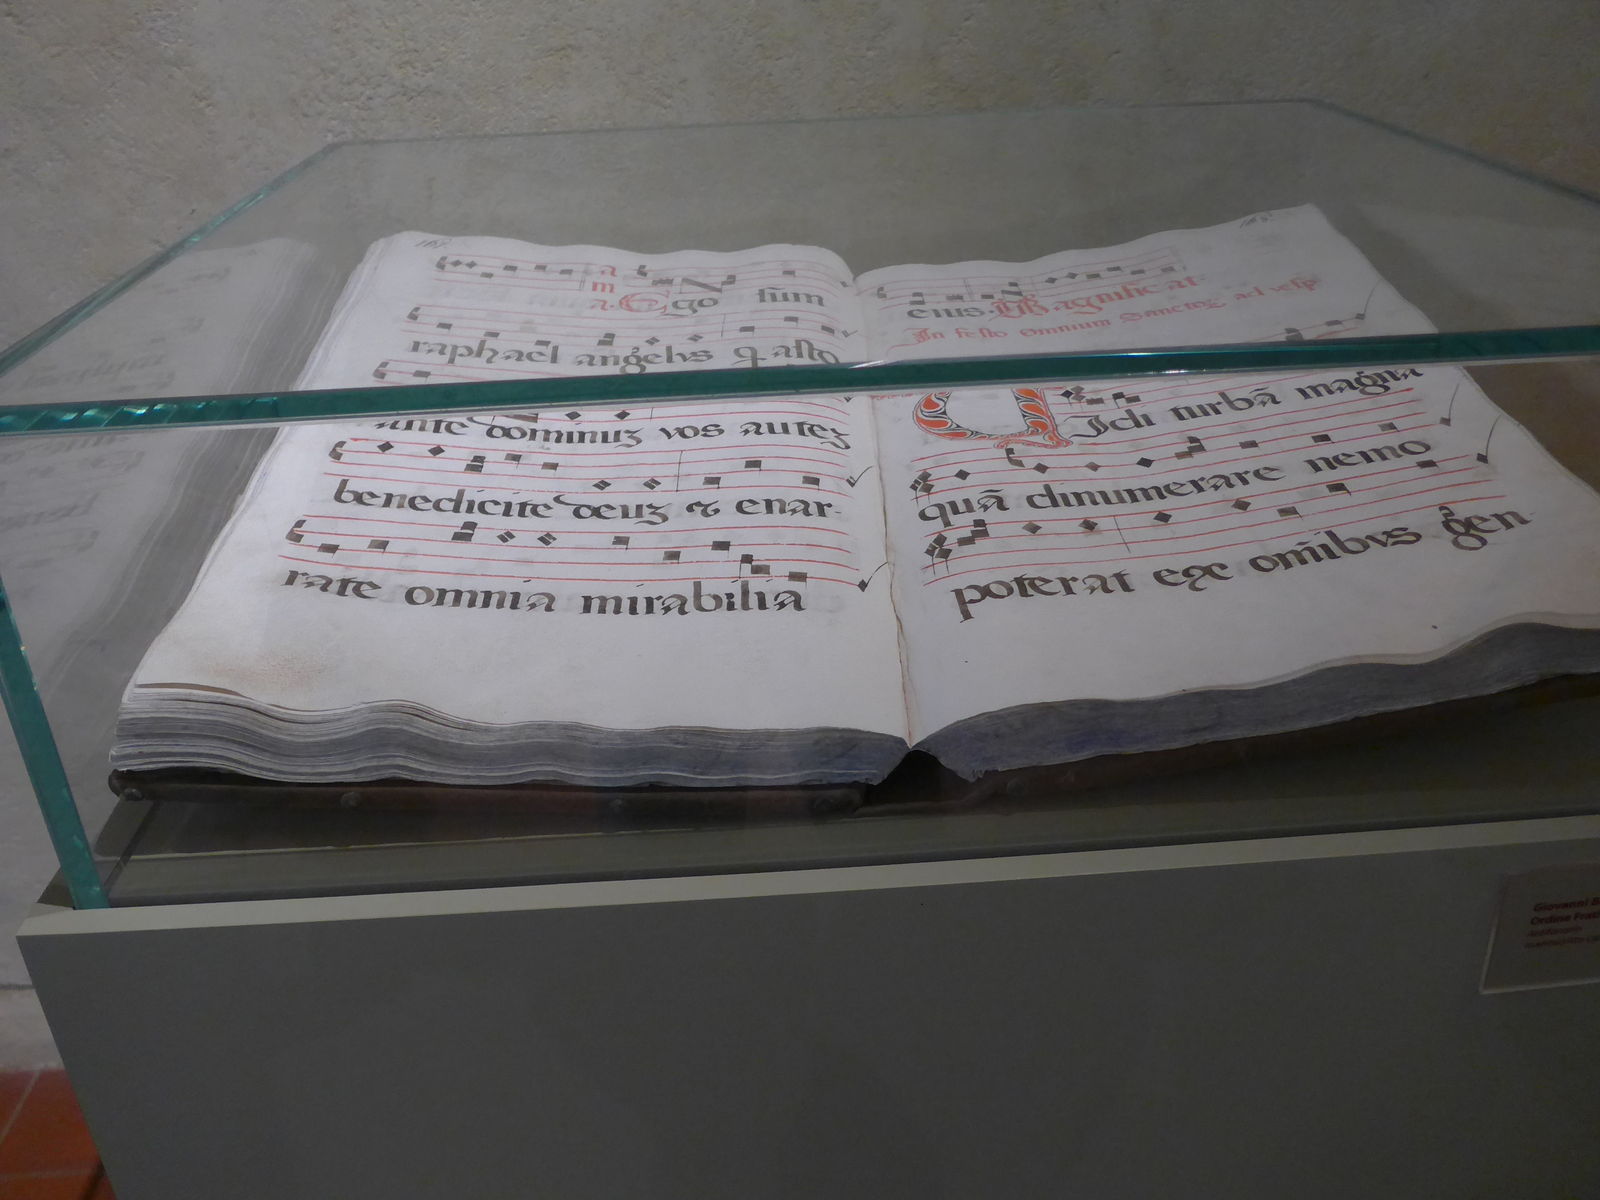 a
m
a. Ego sum
raphael angelvs q asto
ante dominuz vos autez
benedicite deuz & enar-
rate omnia mirabilia
eius. Magnificat
In festo omnium Sanctoz ad vesp
Vidi turbã magna
quã dinumerare nemo
poterat exe om̃ibvs gen-
Giovanni B
Ordine Frat